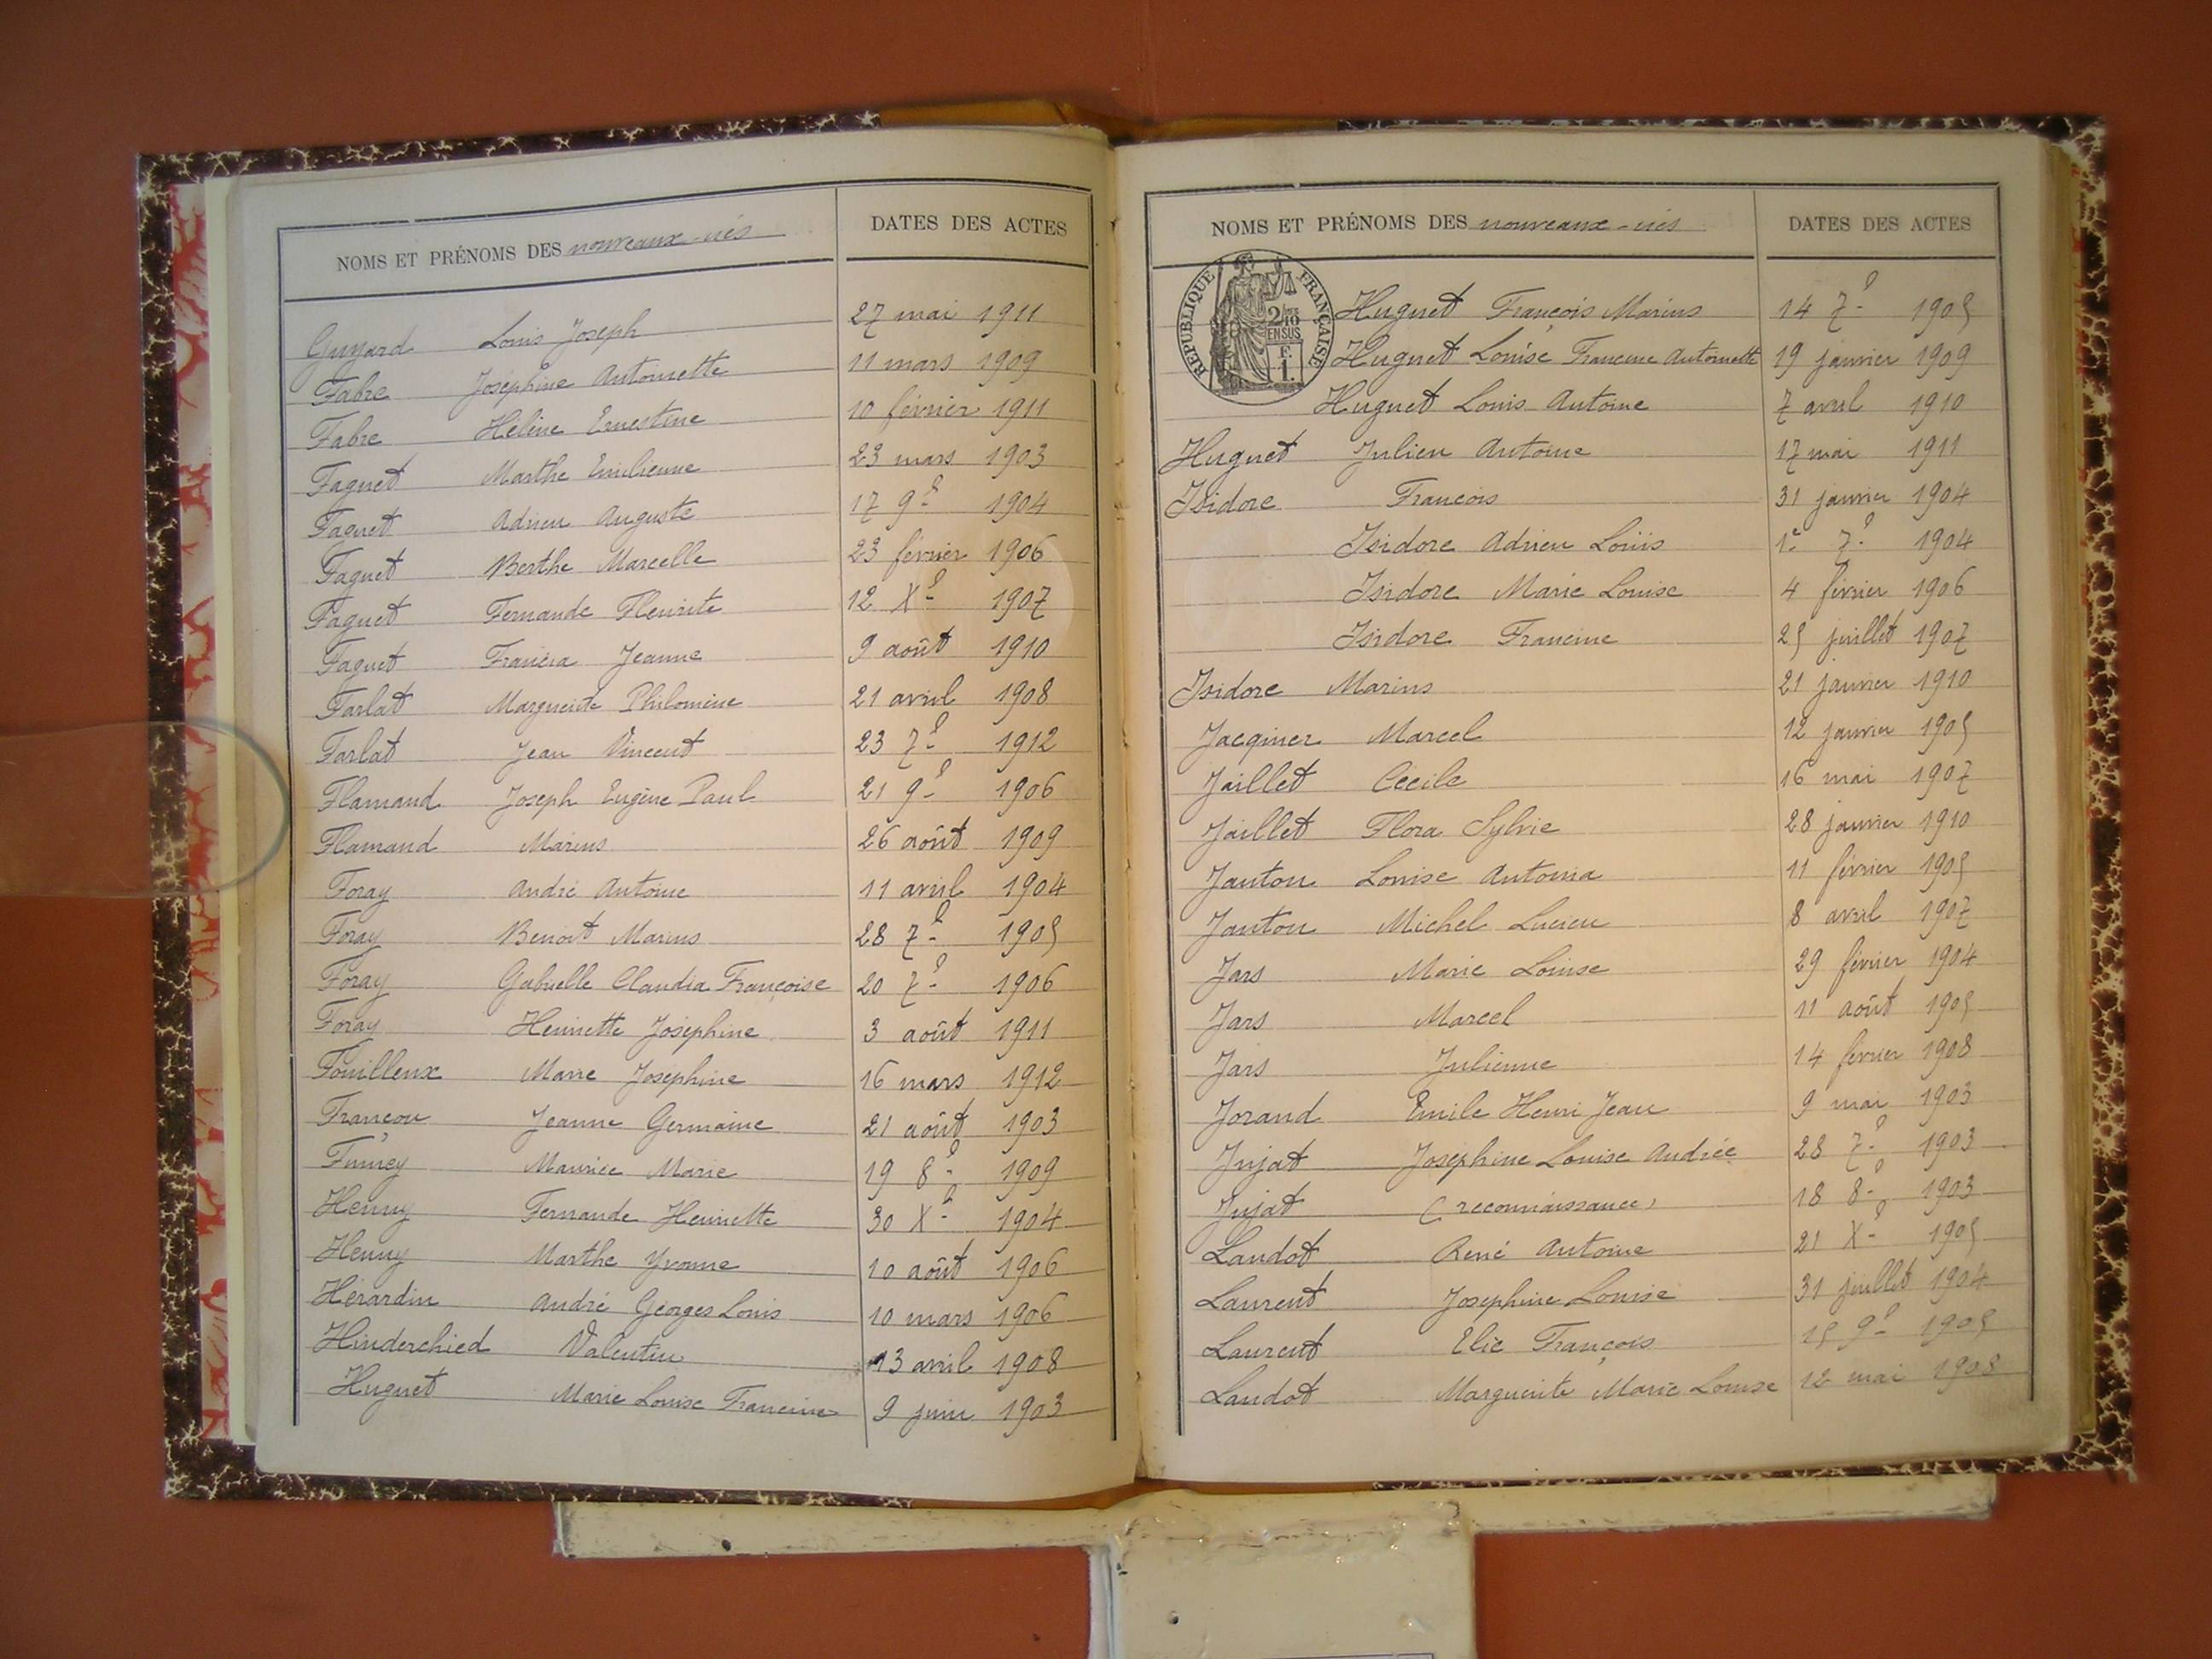 NOMS ET PRÉNOMS DES nouveaux-nés DATES DES ACTES
Guyard Louis Joseph 27 mai 1911
Fabre Joséphine Antoinette 11 mars 1909
Fabre Hélène Ernestine 10 février 1911
Faguet Marthe Emilienne 23 mars 1903
Faguet Adrien Auguste 17 9e 1904
Faguet Berthe Marcelle 23 février 1906
Faguet Fernande Fleurite 12 Xe 1907
Faguet Francia Jeanne 9 août 1910
Farlat Marguerite Philomène 21 avril 1908
Farlat Jean Vincent 23 7e 1912
Flamand Joseph Eugène Paul 21 9e 1906
Flamand Marius 26 août 1909
Foray André Antoine 11 avril 1904
Foray Benoit Marius 28 7e 1905
Foray Gabrielle Claudia Françoise 20 7e 1906
Foray Henriette Joséphine 3 août 1911
Fouilleux Marie Josephine 16 mars 1912
Françon Jeanne Germaine 21 août 1903
Maurice Marie 19 8e 1909
Henny Fernande Henriette 30 Xe 1904
Henny Marthe Yvonne 10 août 1906
Hérardin André Georges Louis 10 mars 1906
Hinderchied Valentin 13 avril 1908
Huguet Marie Louise Francine 9 juin 1903
NOMS ET PRÉNOMS DES nouveaux-nés DATES DES ACTES
REPUBLIQUE FRANÇAISE
2/10
EN SUS
F.
1.
Huguet François Marius 14 7e 1905
Huguet Louise Francine Antoinette 19 janvier 1909
Huguet Louis Antoine 7 avril 1910
Huguet Julien Antoine 17 mai 1911
Isidore François 31 janvier 1904
Isidore Adrien Louis 1e 7e 1904
Isidore Marie Louise 4 février 1906
Isidore Francine 25 juillet 1907
Isidore Marius 21 janvier 1910
Jacquier Marcel 12 janvier 1905
Jaillet Cécile 16 mai 1907
Jaillet Flora Sylvie 28 janvier 1910
Janton Louise Antonia 11 février 1905
Janton Michel Lucien 8 avril 1907
Jars Marie Louise 29 février 1904
Jars Marcel 11 août 1905
Jars Julienne 14 février 1908
Jorand Emile Henri Jean 9 mai 1903
Jujat Joséphine Louise Andrée 28 7e 1903
Jujat (reconnaissance) 18 8e 1903
Laudot René Antoine 21 Xe 1905
Laurent Josephine Louise 31 juillet 1904
Laurent Elie François 15 9e 1905
Laudot Marguerite Marie Louise 12 mai 1908